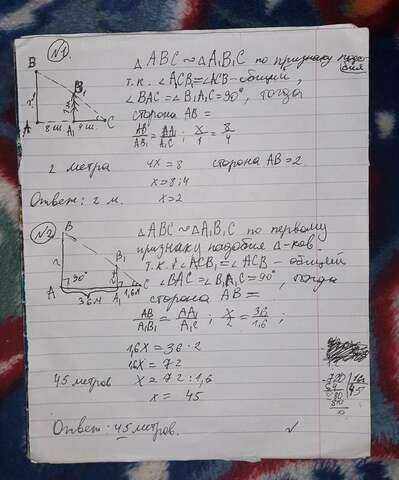 №1
B
B₁
?
A 8 м. A₁ 4 м. C
△ABC ~ △A₁B₁C по признаку подобия
т.к. ∠ACB₁=∠ACB-общий,
∠BAC=∠B₁A₁C=90°, тогда
сторона AB =
AB/AB₁ = AA₁/A₁C ; x/1 = 8/4
2 метра 4x = 8 сторона AB=2
x=8:4
Ответ: 2 м. x=2
№2
B
B₁
?
90°
A 36м A₁ 1,6м C
△ABC ~ △A₁B₁C по первому
признаку подобия △-ков.
т.к ∠ACB₁=∠ACB - общий
∠BAC=∠B₁A₁C=90°, тогда
сторона AB=
AB/A₁B₁ = AA₁/A₁C ; x/2 = 36/1,6 ;
1,6x=36·2
1,6x=72
45 метров x = 72:1,6
x = 45
720
64 45
80
80
0
Ответ: 45 метров.